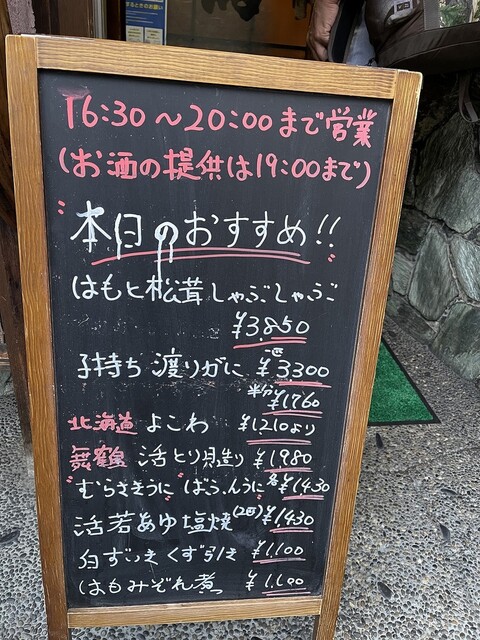 するときのお願い
16:30〜20:00まで営業
(お酒の提供は19:00まで)
"本日のおすすめ!!"
はもと松茸しゃぶしゃぶ
¥3,850
子持ち 渡りがに ¥3300
半分¥1760
北海道 よこわ ¥1,210より
舞鶴 活とり貝造り ¥1,980
"むらさきうに" "ばふんうに" 各¥1430
活若あゆ塩焼(2匹) ¥1430
白ずいき くず引き ¥1,100
はもみぞれ煮 ¥1,100